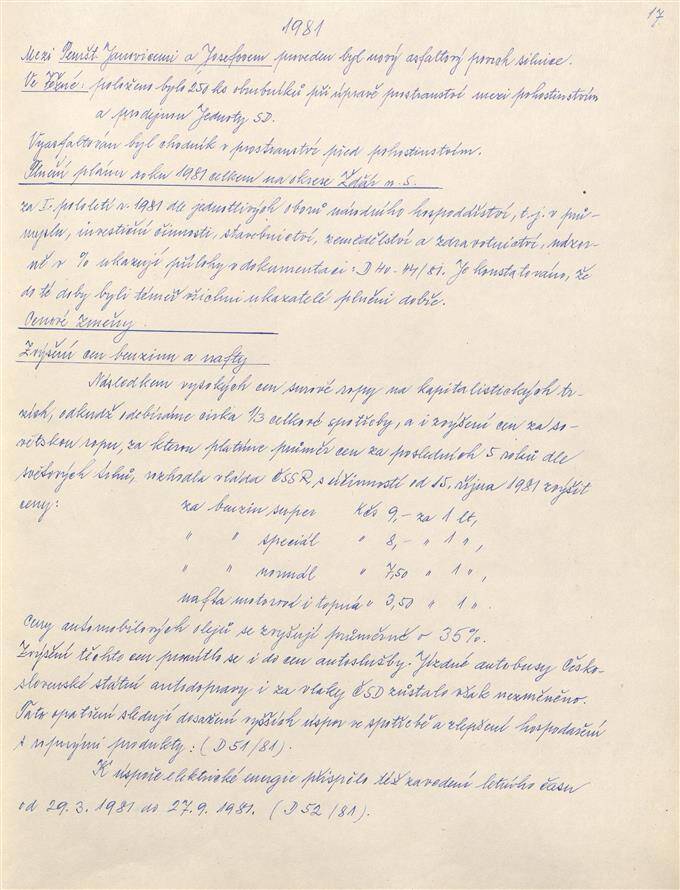 17
1981
Mezi Pernšt. Janovicemi a Josefovem proveden byl nový asfaltový povrch silnice.
Ve Ždárné: položeno bylo 250 ks obrubníků při úpravě prostranství mezi pohostinstvím
a prodejnou Jednoty SD.
Vyasfaltován byl chodník v prostranství před pohostinstvím.
Plnění plánu roku 1981 celkem na okrese Žďár n.S.
za I. pololetí r. 1981 dle jednotlivých oborů národního hospodářství, t.j. v prů-
myslu, investiční činnosti, stavebnictví, zemědělství a zdravotnictví, názor-
ně v % ukazují přílohy v dokumentaci: D 40-44/81. Je konstatováno, že
do té doby byli téměř všichni ukazatelé plněni dobře.
Cenové změny.
Zvýšení cen benzinu a nafty
Následkem vysokých cen surové ropy na kapitalistických tr-
zích, odkudž odebíráme cirka 1/3 celkové spotřeby, a i zvýšení cen za so-
větskou ropu, za kterou platíme průměr cen za posledních 5 roků dle
světových trhů, rozhodla vláda ČSSR, s účinností od 15. října 1981 zvýšit
ceny:
za benzin super Kčs 9,- za 1 lt,
" " speciál " 8,- " 1 ",
" " normál " 7,50 " 1 ",
nafta motorová i topná " 3,50 " 1 ".
Ceny automobilových olejů se zvyšují průměrně o 35%.
Zvýšení těchto cen promítlo se i do cen autoslužby. Jízdné autobusy Česko-
slovenské státní autodopravy i za vlaky ČSD zůstalo však nezměněno.
Tato opatření sledují dosažení vyšších úspor ve spotřebě a zlepšení hospodaření
s ropnými produkty: (D 51/81).
K úspoře elektrické energie přispělo též zavedení letního času
od 29.3.1981 do 27.9.1981. (D 52/81).